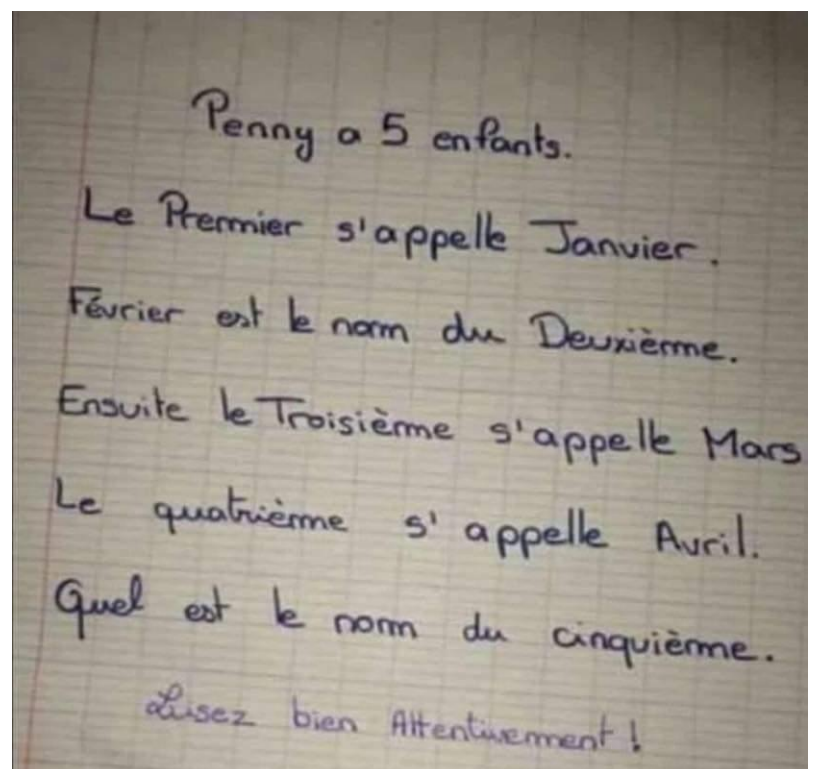 Penny a 5 enfants.
Le Premier s'appelle Janvier.
Février est le nom du Deuxième.
Ensuite le Troisième s'appelle Mars
Le quatrième s'appelle Avril.
Quel est le nom du cinquième.
Lisez bien Attentivement !